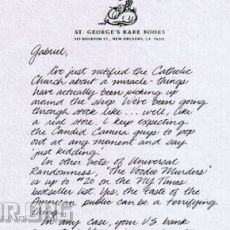 ST. GEORGE'S RARE BOOKS
NEW ORLEANS, LA
Gabriel,
I've just notified the Catholic
Church about a miracle - things
have actually been picking up
around the shop. We've been going
through stock like... well, like
a real store. I keep expecting
the Candid Camera guys to pop
out at any moment and say
"just kidding".
In other facts of Universal
Randomness, "The Voodoo Murders"
is up to #20 on the NY Times
bestseller list. Yes, the taste of the
American public can be a terrifying
In any case, your U.S. bank